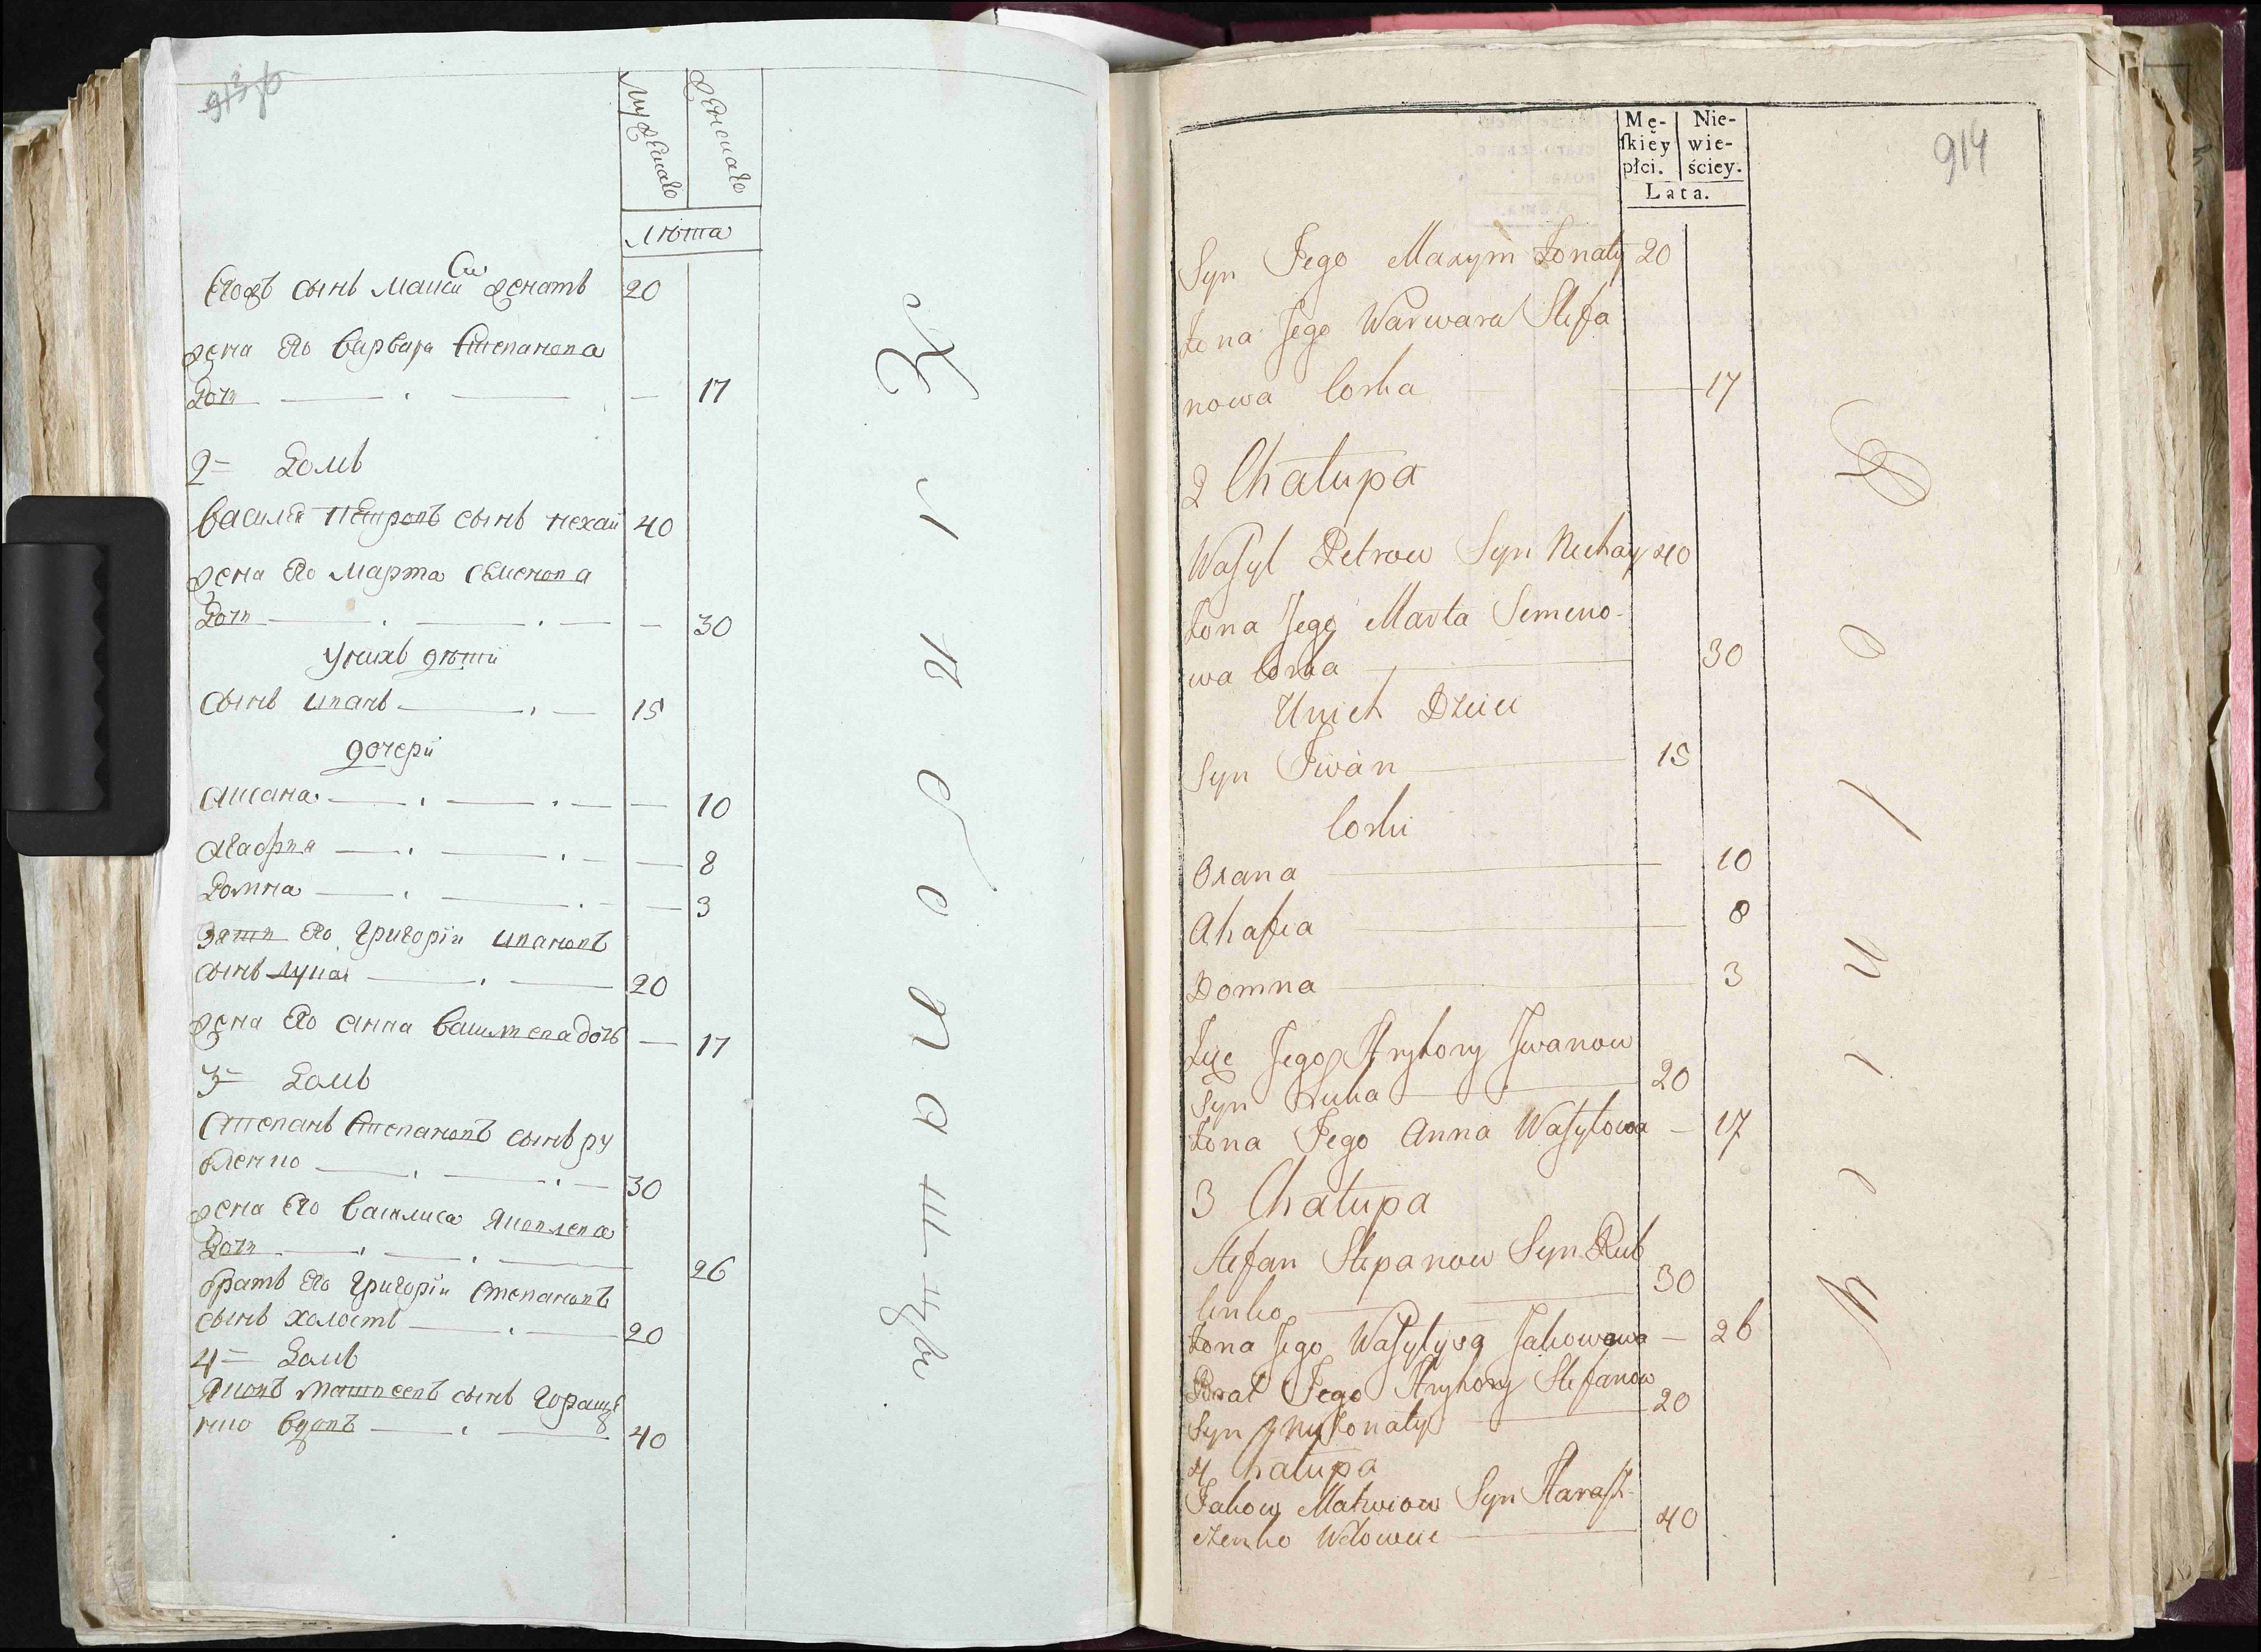 913 об
мужеска
женска
лѣта
Егожъ сынъ макси женатъ 20
жена Его варвара Степанова
Дочь 17
2= Домъ
василей Петровъ сынъ нехай 40
жена Его марта Семенова
Дочь 30
Унихъ дѣти
сынъ иванъ 15
дочери
аксана 10
агафия 8
Домна 3
Зять Его григории ивановъ
сынъ лука 20
жена Его анна василева дочь 17
3= Домъ
Степанъ Степановъ сынъ ру
бленко 30
жена Его василиса яковлева
Дочь 26
братъ Его григории степановъ
сынъ холостъ 20
4= Домъ
Яковъ матвеевъ сынъ гораще
нко вдовъ 40
914
Mę-
ſkiey
płci.
Nie-
wie-
ściey.
Lata.
Syn Jego Maxym Żonaty 20
Żona Jego Warwara Stefa
nowa Corka 17
2 Chałupa
Wasyl Petrow Syn Nechay 40
Żona Jego Marta Semeno-
wa Corka 30
Unich Dzieci
Syn Iwan 15
Corki
Oxana 10
Ahafia 8
Domna 3
Zięć Jego Hryhory Iwanow
Syn Łuka 20
Żona Jego Anna Wasylowa 17
3 Chałupa
Stefan Stepanow Syn Rub
lenko 30
Żona Jego Wasylysa Jakowowa 26
Brat Jego Hryhory Stefanow
Syn Nieżonaty 20
4 Chałupa
Jakow Matwiow Syn Harasz-
czenko Wdowiec 40